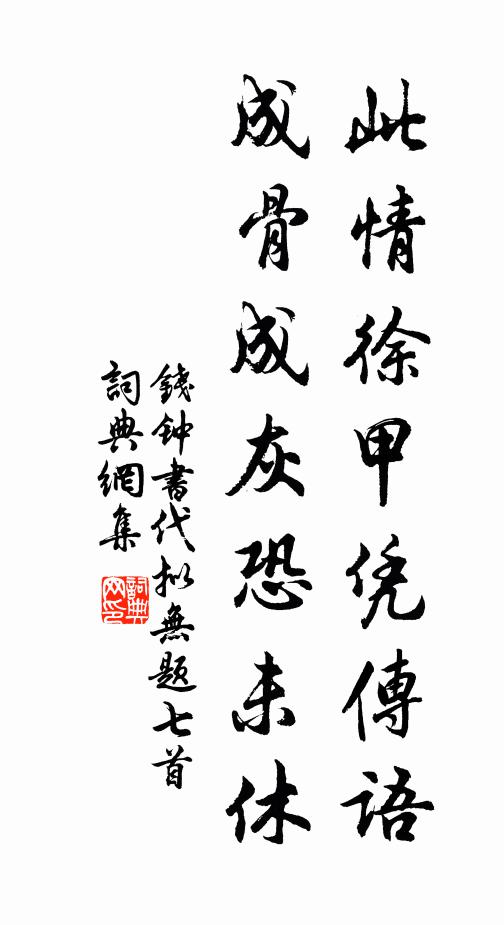 此情徐甲凭傳語
成骨成灰恐未休
錢钟書代拟無题七首
詞典網集
詞典网印